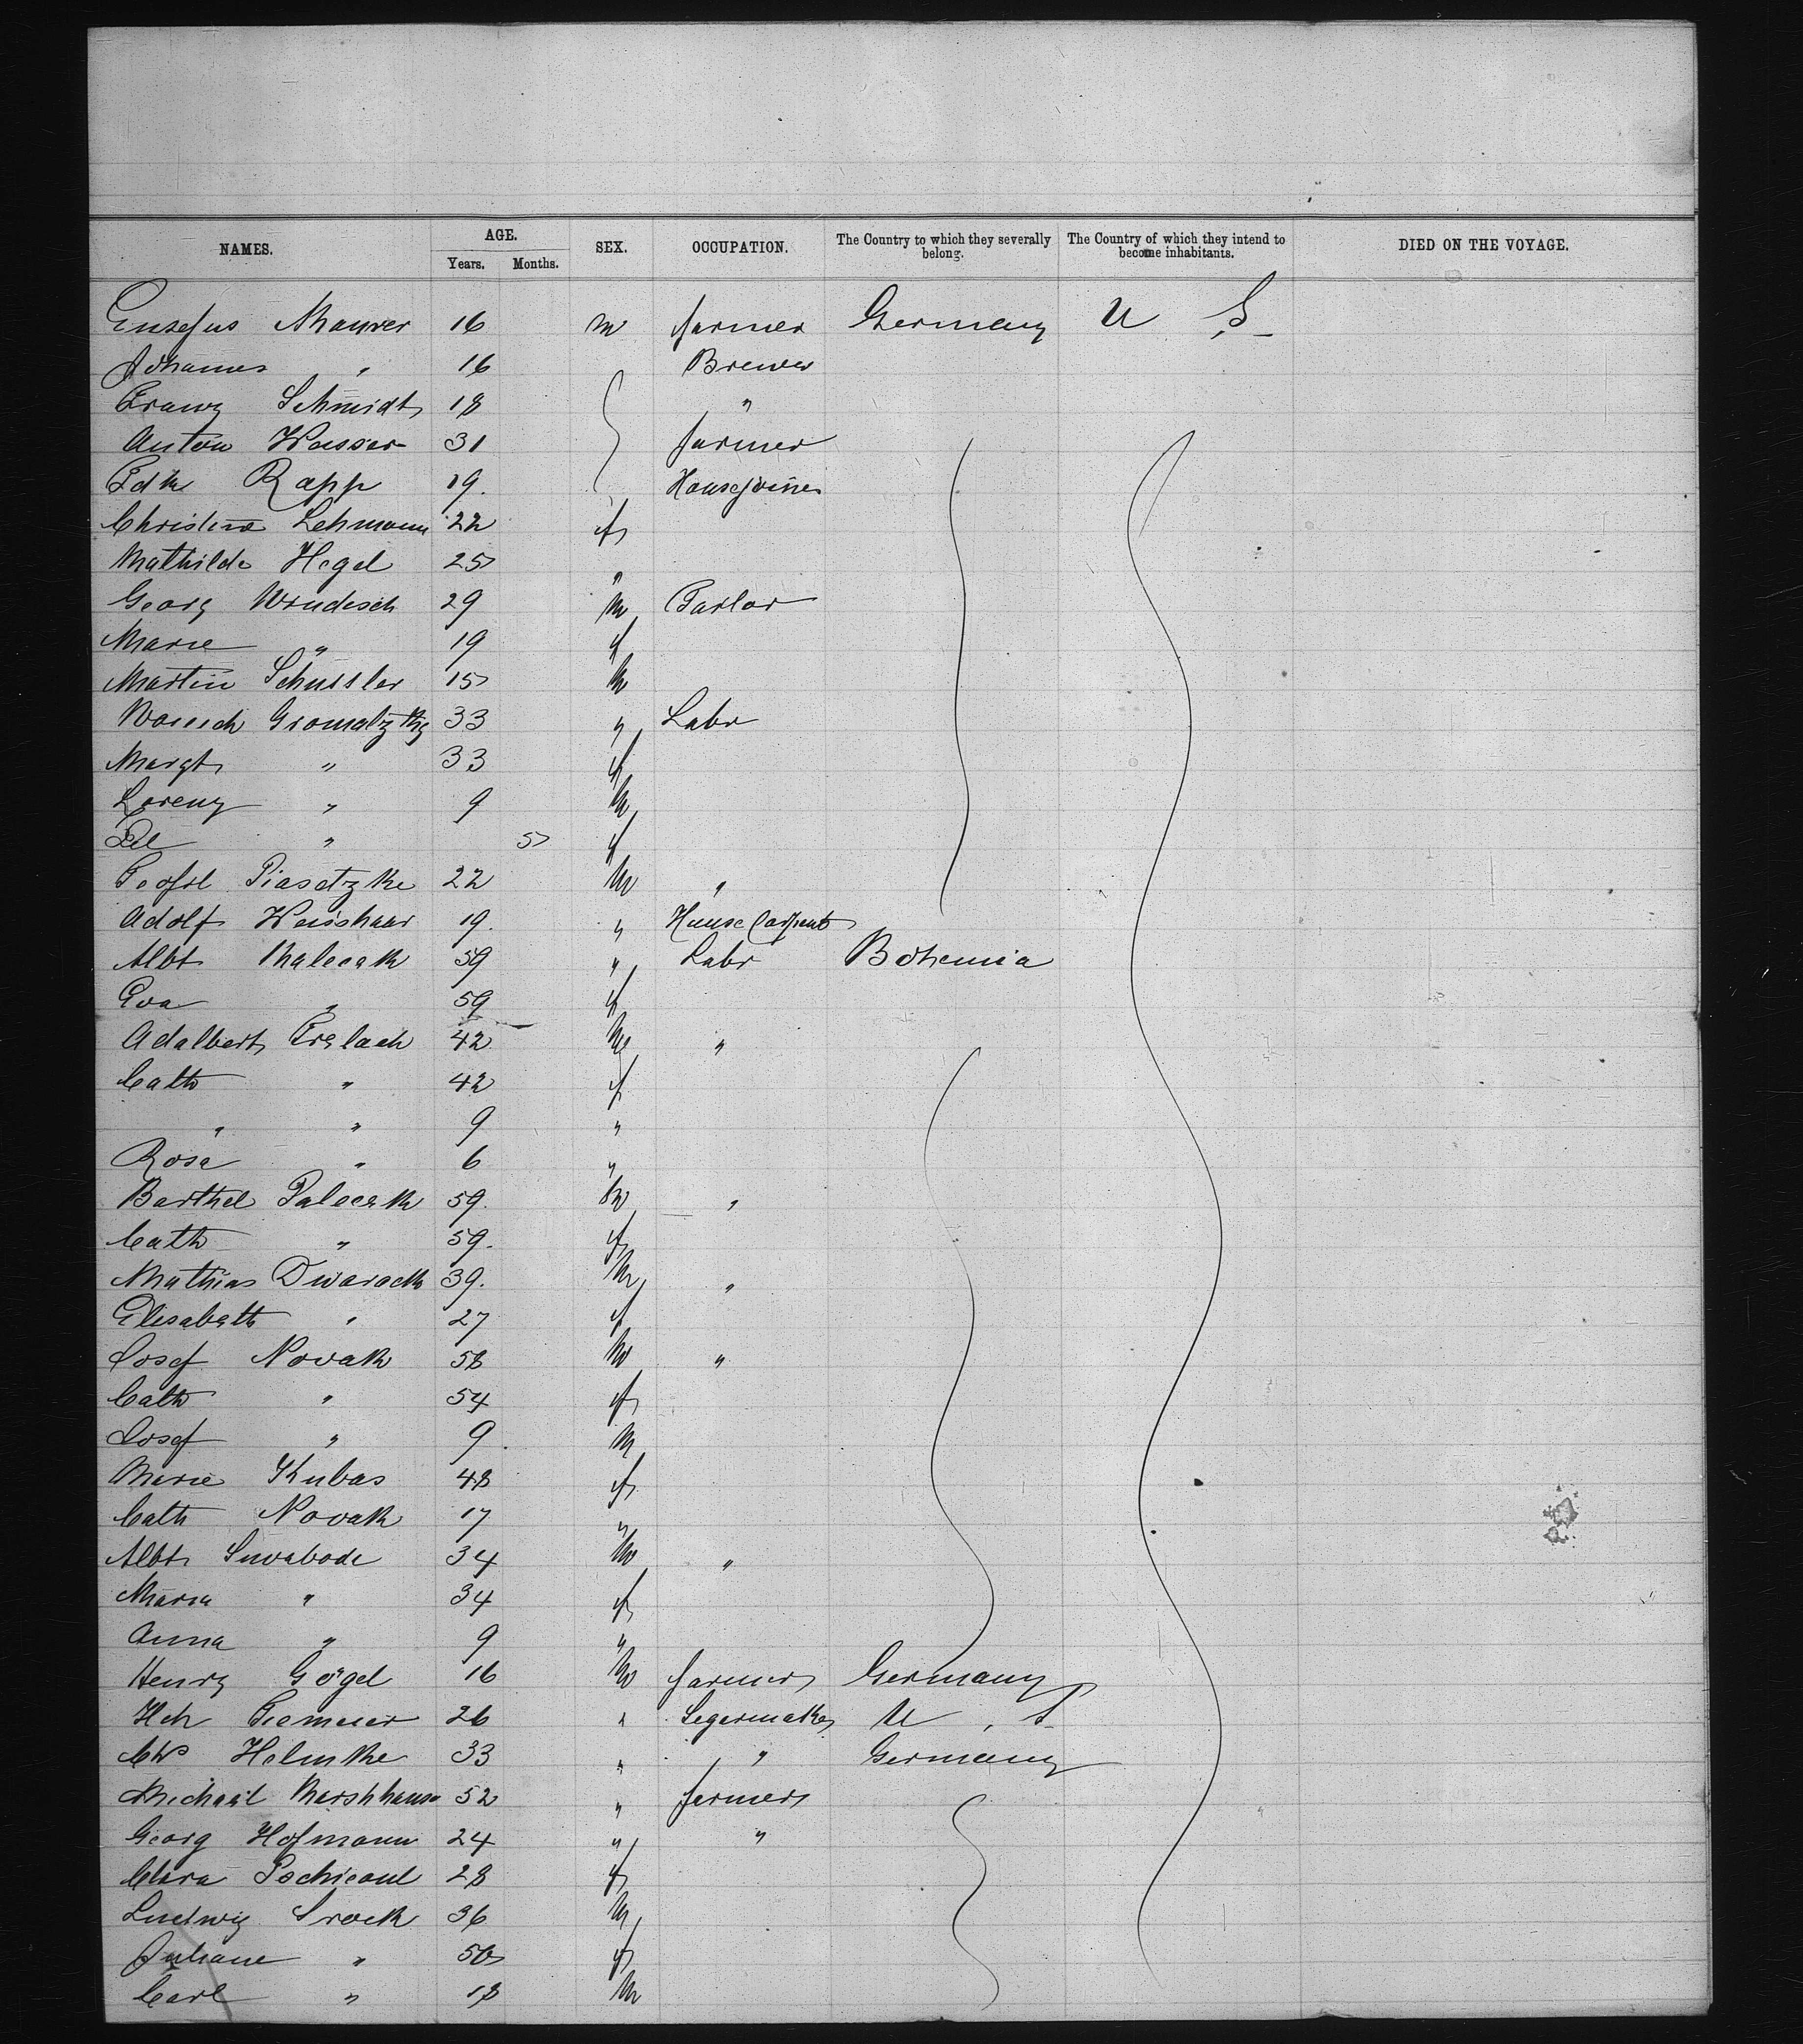 NAMES. AGE. Years. Months. SEX. OCCUPATION. The Country to which they severally belong. The Country of which they intend to become inhabitants. DIED ON THE VOYAGE.
Maurer 16 m farmer Germany U S
Johannes " 16 Brewer
Franz Schmidt 18 "
Anton Weisser 31 farmer
Rapp 19. Housejoiner
Christine Lehmann 22 f
Mathilde Hegel 25 "
Georg Windisch 29 m Tailor
Marie " 19 f
Martin Schussler 15 m
33 " Labr
Margt " 33 f
Lorenz " 9 m
" 5 f
22 m "
Adolf Weisshaar 19. " House Carpent
Albt 59 " Labr Bohemia
Eva " 59 f
Adalbert 42 m "
Cath " 42 f
" " 9 "
Rosa " 6 "
Barthel Palecek 59. m "
Cath " 59. f
Mathias Dwarack 39. m "
Elisabeth " 27 f
Josef Novak 58 m "
Cath " 54 f
Josef " 9 m
Marie Kubas 48 f
Cath Novak 17 "
Albt Swabode 34 m "
Maria " 34 f
Anna " 9 "
Henry Gögel 16 m farmer Germany
Hch 26 " Segarmaker U . S
Chs Helmke 33 " " Germany
Michael 52 " farmer
Georg Hofmann 24 " "
Clara 28 f
Ludwig Srock 36 m
Juliane " 50 f
Carl " 18 m